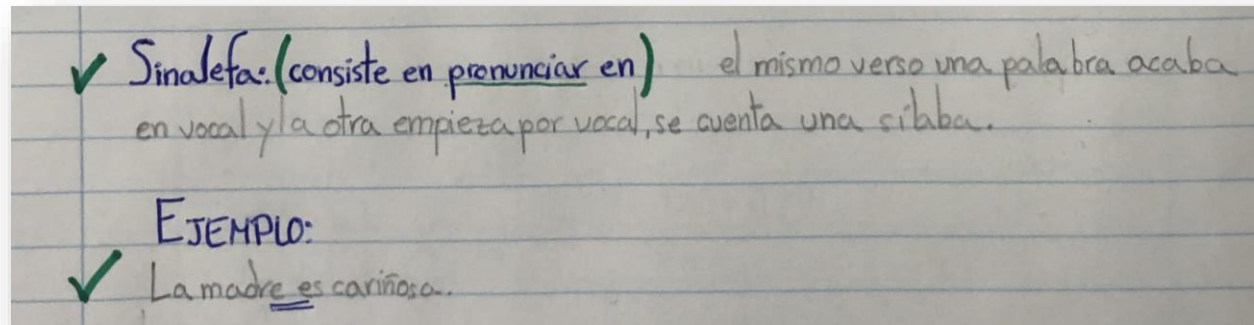 Sinalefa: (consiste en pronunciar en) el mismo verso una palabra acaba
en vocal y la otra empieza por vocal, se cuenta una sílaba.
EJEMPLO:
La madre es cariñosa.